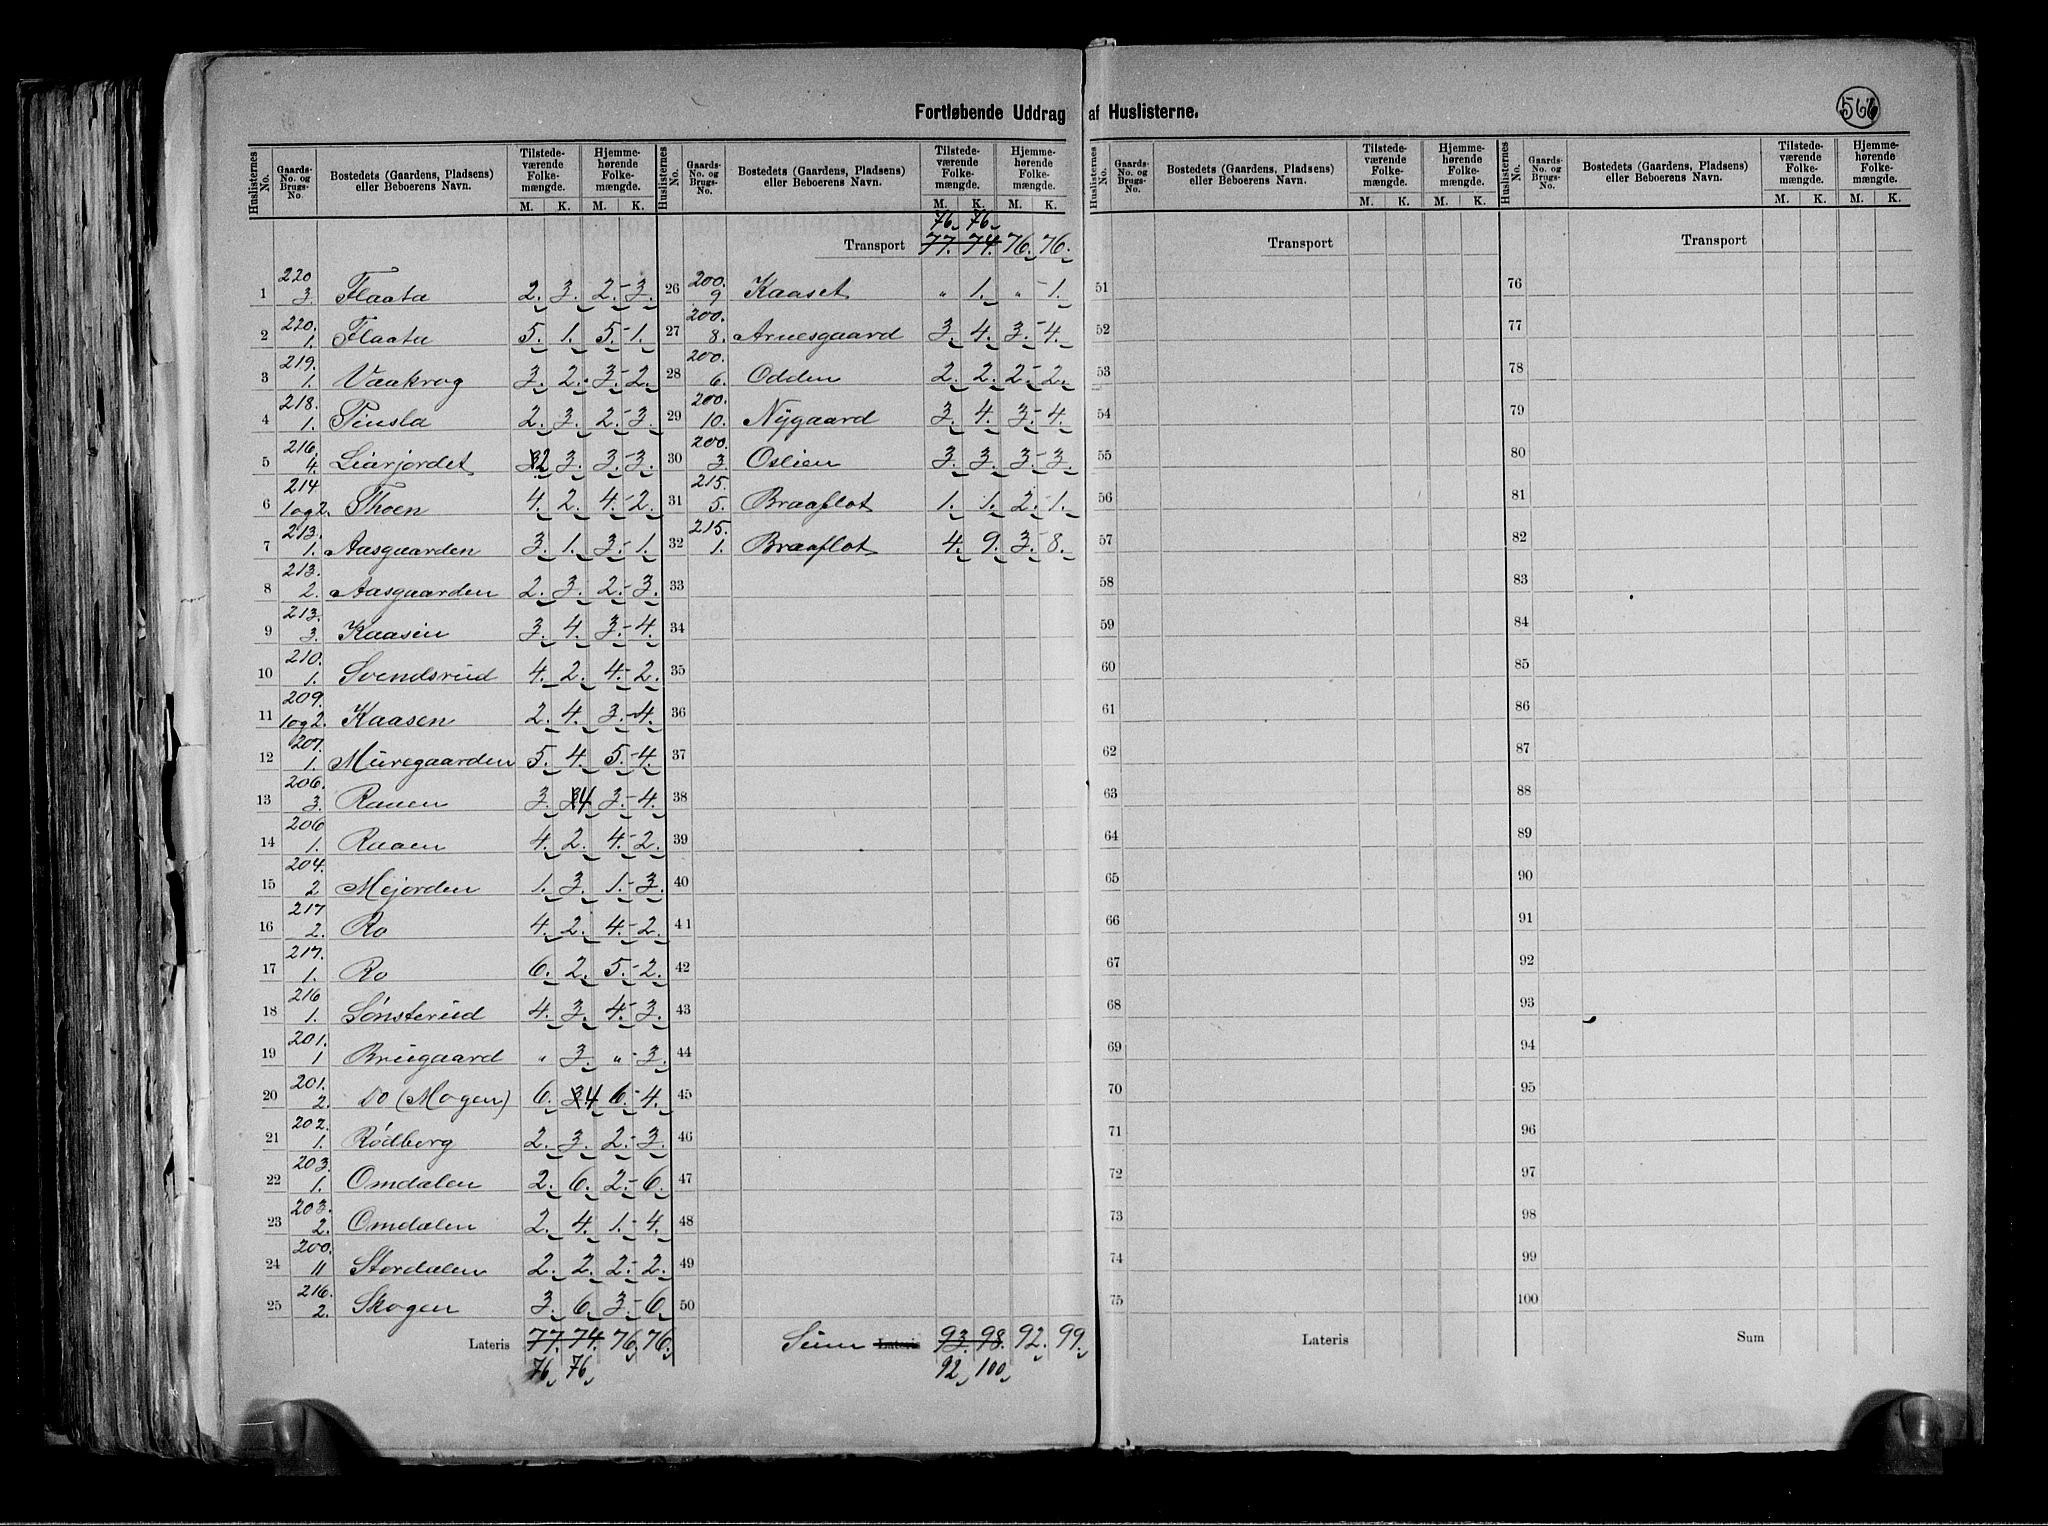 Fortløbende Uddrag af Huslisterne.
566
Huslisternes No. Gaards-No. og Brugs-No. Bostedets (Gaardens, Pladsens) eller Beboerens Navn. Tilstedeværende Folkemængde. M. K. Hjemmehørende Folkemængde. M. K.
1 220. 3. Flaata 2. 3. 2. 3.
2 220. 1. Flaata 5. 1. 5. 1.
3 219. 1. Vaakrog 3. 2. 3. 2.
4 218. 1. Pinsla 2. 3. 2. 3.
5 216. 4. Liarjordet 32 3. 3. 3.
6 214 1og2. Thoen 4. 2. 4. 2.
7 213. 1. Aasgaarden 3. 1. 3. 1.
8 213. 2. Aasgaarden 2. 3. 2. 3.
9 213. 3. Kaasen 3. 4. 3. 4.
10 210. 1. Svendsrud 4. 2. 4. 2.
11 209. 1og2. Kaasen 2. 4. 3. 4.
12 207. 1. Muregaarden 5. 4. 5. 4.
13 206. 3. Raaen 3. 34 3. 4.
14 206 1. Raaen 4. 2. 4. 2.
15 204. 2 Mejorden 1. 3. 1. 3.
16 217 2. Ro 4. 2. 4. 2.
17 217. 1. Ro 6. 2. 5. 2.
18 216 1. Sønsterud 4. 3. 4. 3.
19 201. 1 Brugaard " 3. " 3.
20 201. 2. Do (Mogen) 6. 34 6. 4.
21 202. 1. Rødberg 2. 3. 2. 3.
22 203. 1. Omdalen 2. 6. 2. 6.
23 203. 2. Omdalen 2. 4. 1. 4.
24 200. 11 Stordalen 2. 2. 2. 2.
25 216. 2. Skogen 3. 6. 3. 6.
Lateris 77. 74. 76. 76.
76 76
Huslisternes No. Gaards-No. og Brugs-No. Bostedets (Gaardens, Pladsens) eller Beboerens Navn. Tilstedeværende Folkemængde. M. K. Hjemmehørende Folkemængde. M. K.
76. 76.
Transport 77. 74. 76. 76.
26 200. 9 Kaaset " 1. " 1.
27 200. 8. Arnesgaard 3. 4. 3. 4.
28 200. 6. Odden 2. 2. 2. 2.
29 200. 10. Nygaard 3. 4. 3. 4.
30 200. 3. Oslien 3. 3. 3. 3.
31 215. 5. Braaflot 1. 1. 2. 1.
32 215. 1. Braaflot 4. 9. 3. 8.
33
34
35
36
37
38
39
40
41
42
43
44
45
46
47
48
49
50
Sum Lateris 93. 98. 92. 99.
92 100
Huslisternes No. Gaards-No. og Brugs-No. Bostedets (Gaardens, Pladsens) eller Beboerens Navn. Tilstedeværende Folkemængde. M. K. Hjemmehørende Folkemængde. M. K.
Transport
51
52
53
54
55
56
57
58
59
60
61
62
63
64
65
66
67
68
69
70
71
72
73
74
75
Lateris
Huslisternes No. Gaards-No. og Brugs-No. Bostedets (Gaardens, Pladsens) eller Beboerens Navn. Tilstedeværende Folkemængde. M. K. Hjemmehørende Folkemængde. M. K.
Transport
76
77
78
79
80
81
82
83
84
85
86
87
88
89
90
91
92
93
94
95
96
97
98
99
100
Sum